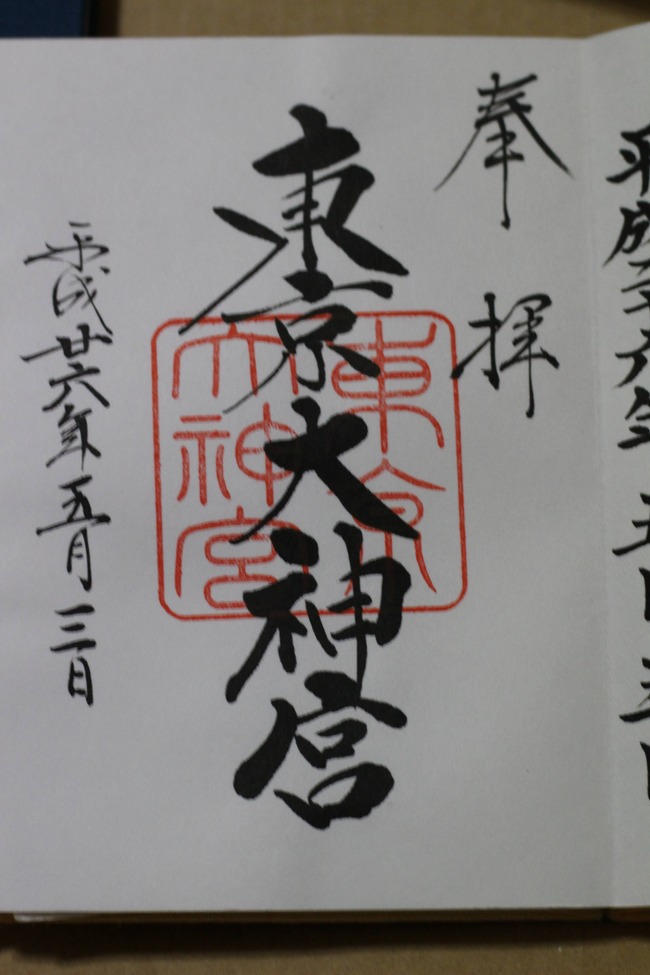 平成二十六年 五月五日
奉拝
東京大神宮
東京
大神宮
平成廿六年五月三日